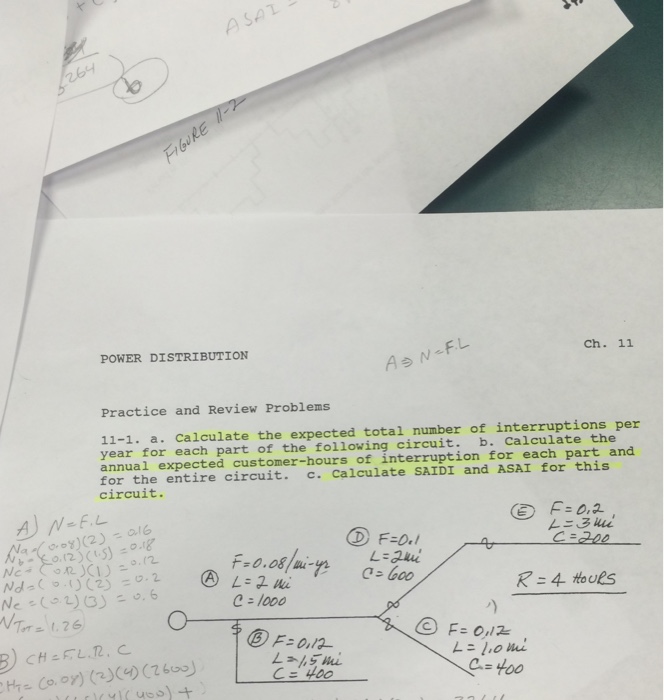 ASAI =
.264
b
FIGURE 11-2
POWER DISTRIBUTION
A ⇒ N=F.L
Ch. 11
Practice and Review Problems
11-1. a. Calculate the expected total number of interruptions per
year for each part of the following circuit. b. Calculate the
annual expected customer-hours of interruption for each part and
for the entire circuit. c. Calculate SAIDI and ASAI for this
circuit.
A) N=F.L
Na=(0.08)(2) = 0.16
Nb=(0.12)(1.5) = 0.18
Nc=(0.12)(1) = 0.12
Nd=(0.1)(2) = 0.2
Ne=(0.2)(3) = 0.6
NTOT= 1.26
B) CH=F.L.R.C
CHT= (0.08)(2)(4)(2600)
(4)(400)+
A
F=0.08/mi-yr
L=2 mi
C=1000
B F=0.12
L=1.5 mi
C=400
D F=0.1
L=2mi
C=600
E F=0.2
L=3mi
C=200
R=4 HOURS
C F=0.12
L=1.0 mi
C=400